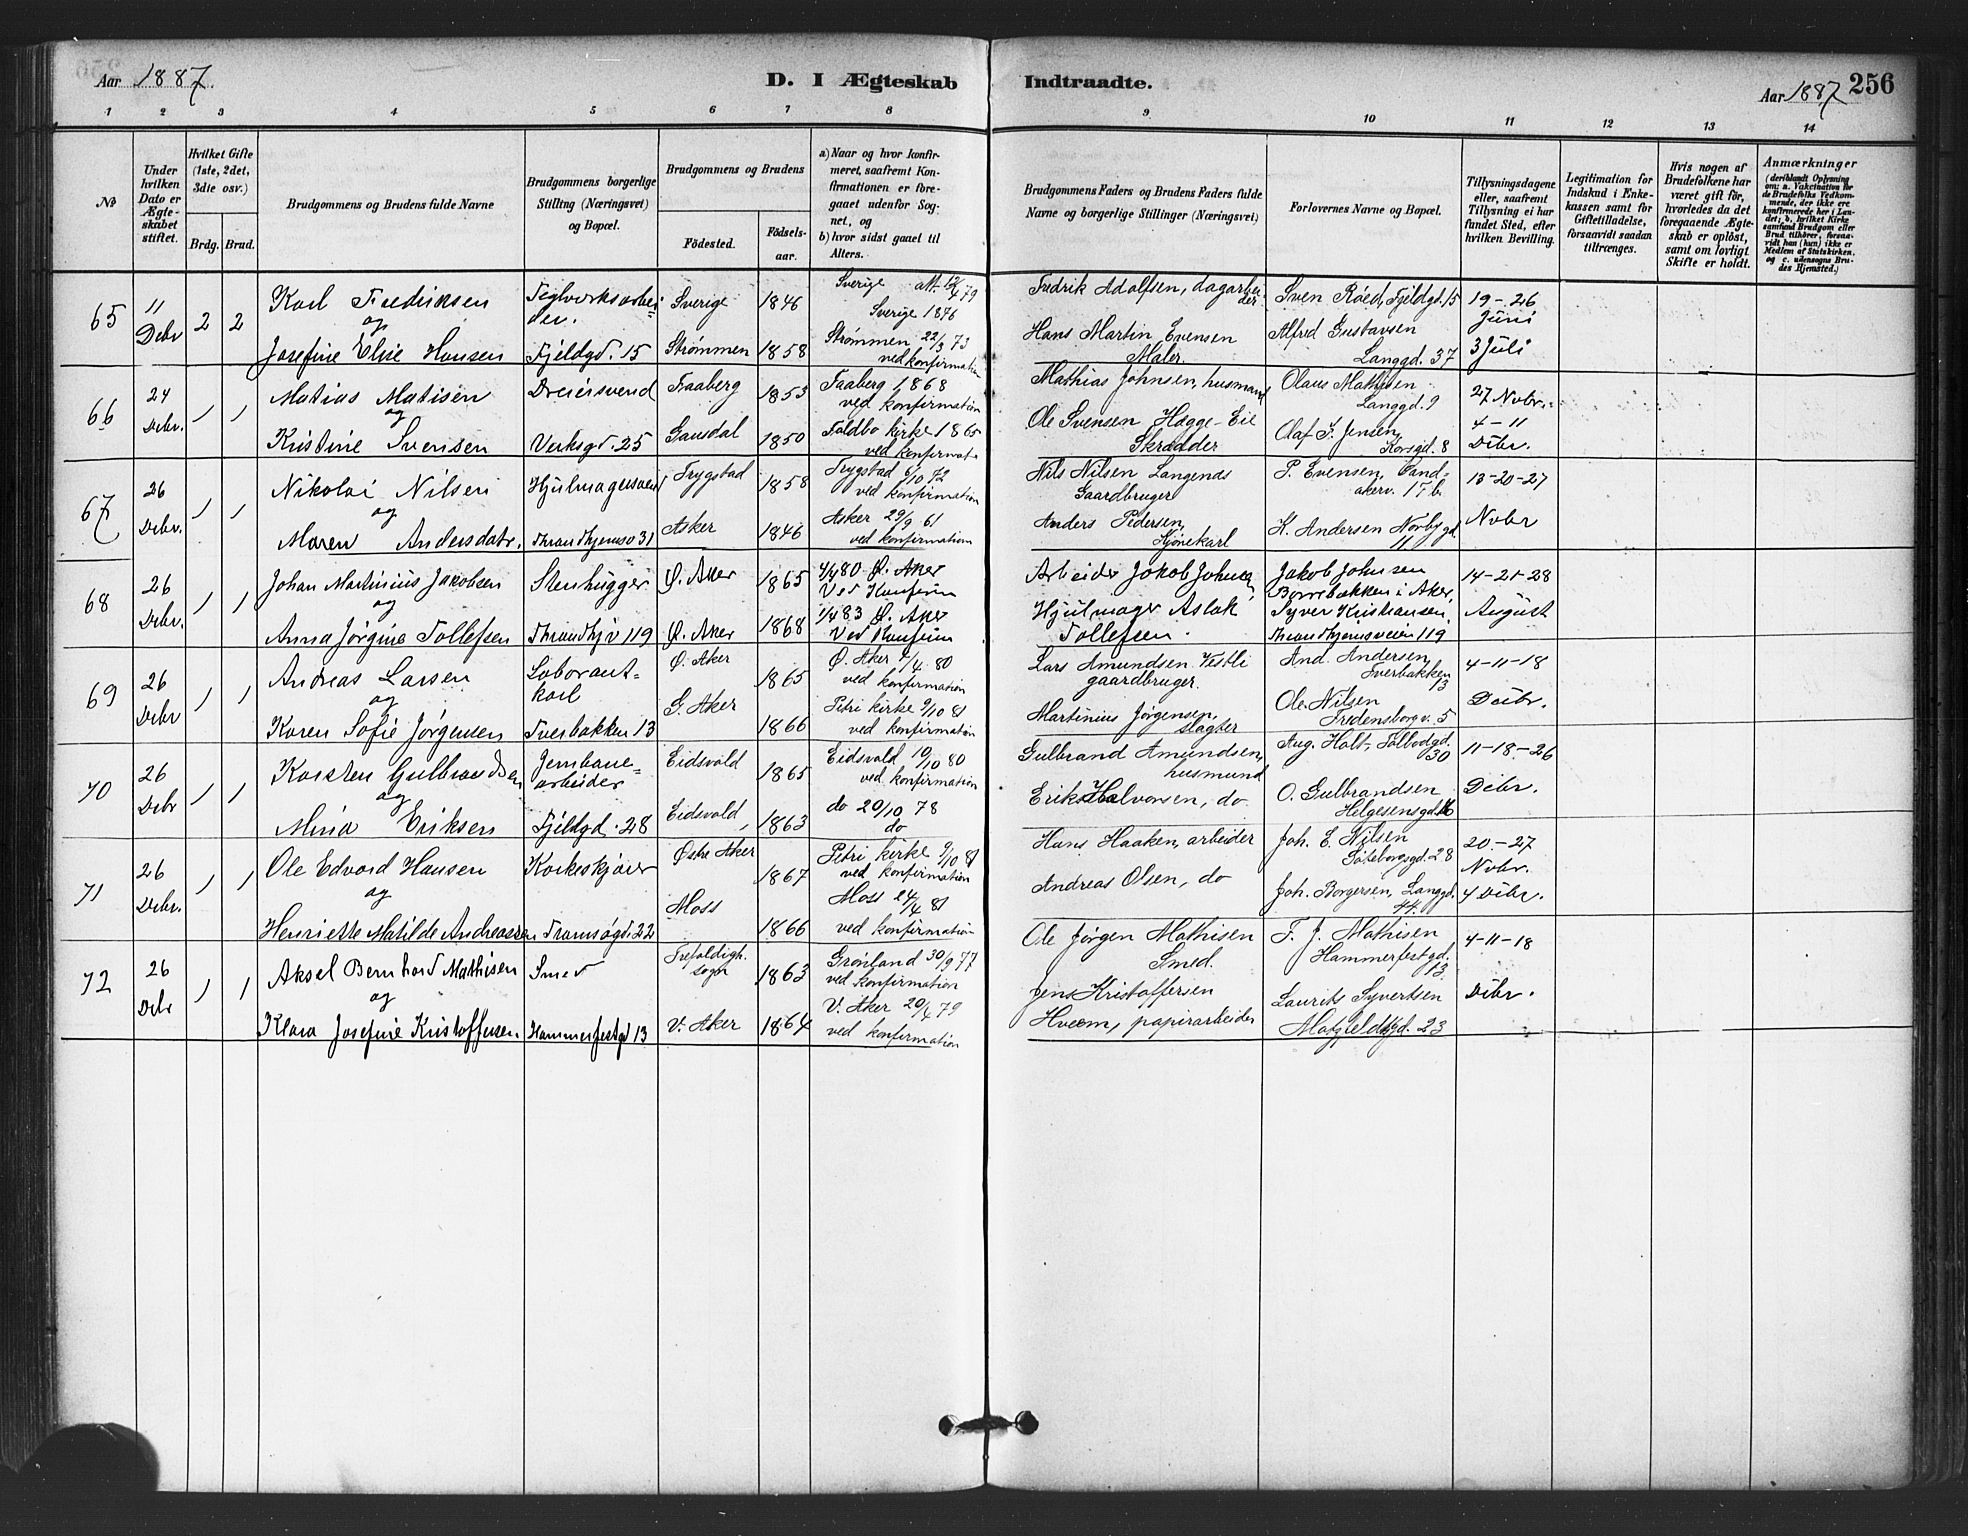 Aar 1887.
D. I Ægteskab Indtraadte.
Aar 1887 256
1 2 3 4 5 6 7 8 9 10 11 12 13 14
No
Under hvilken Dato er Ægteskabet stiftet.
Hvilket Gifte (1ste, 2det, 3die osv.)
Brdg. Brud.
Brudgommens og Brudens fulde Navne
Brudgommens borgerlige Stilling (Næringsvei) og Bopæl.
Brudgommens og Brudens
Fødested. Fødselsaar.
a) Naar og hvor konfirmeret, saafremt Konfirmationen er foregaaet udenfor Sognet, og
b) hvor sidst gaaet til Alters.
Brudgommens Faders og Brudens Faders fulde Navne og borgerlige Stillinger (Næringsvei)
Forlovernes Navne og Bopæl.
Tillysningsdagene eller, saafremt Tillysning ei har fundet Sted, efter hvilken Bevilling.
Legitimation for Indskud i Enkekassen samt for Giftetilladelse, forsaavidt saadan tiltrænges.
Hvis nogen af Brudefolkene har været gift før, hvorledes da det foregaaende Ægteskab er opløst, samt om lovligt Skifte er holdt.
Anmærkninger
(deriblandt Oplysning om: a. Vakcination for de Brudefolks Vedkommende, der ikke ere konfirmerede her i Landet; b. hvilket Kirkesamfund Brudgom eller Brud tilhører, forsaavidt han (hun) ikke er Medlem af Statskirken, og c. udensogns Brudes Hjemsted.)
65 11 Debr 2 2
Karl Fredriksen
og
Josefine Elise Hansen
Teglverksarbeider.
Fjeldgd. 15
Sverige 1846
Strømmen 1858
Sverige 1876
Strømmen 22/3 73
ved konfirmation
Fredrik Adolfsen, dagarbeider
Hans Martin Evensen
Maler
Sven Røed, Fjeldgd. 15
Alfred Gustavsen
Langgd. 37
19-26
Juni
3 Juli
66 24 Debr. 1 1
Matias Matisen
og
Kristine Svensen
Dreiersvend
Verksgd. 25
Faaberg 1853
Gausdal 1850
Faaberg 1868
ved konfirmation
kirke 1865
ved konfirmat.
Mathias Johnsen, husmand
Ole Svensen Hægge-Eie
Skrædder
Olaus Mathisen
Langgd. 9
Olaf F. Jensen
Korsgd. 8
27 Novbr.
4-11
Debr.
67 26 Debr. 1 1
Nikolai Nilsen
og
Maren Andersdatr.
Hjulmagersvend
31
Trygstad 1858
Asker 1846
Trygstad 6/10 72
ved konfirmation
Asker 29/9 61
ved konfirmation
Nils Nilsen Langends
Gaardbruger
Anders Pedersen
P. Evensen, Sandakerv. 17 b.
K. Andersen Norbygd.
11
13-20-27
Nvbr
68 26 Debr. 1 1
Johan Martinius Jakobsen
og
Anna Jørgine Tollefsen
Stenhugger
Throndhjv 119
Ø. Aker 1865
Ø. Aker 1868
Ø. Aker
Ved Konfirm
Ø. Aker
Ved Konfirm
Arbeider Jakob Johnsen
Hjulmager Aslak
Tollefsen.
Jakob Johnsen
i Aker.
Syver Kristiansen
Throndhjemsveien 119
14-21-28
August
69 26 Debr 1 1
Andreas Larsen
og
Karen Sofie Jørgensen
Laborantkarl
Tverbakken 13
Ø. Aker 1865
G. Aker 1866
Ø. Aker 80
ved konfirmation
Petri kirke 9/10 81
ved konfirmation
Lars Amundsen Vestli
gaardbruger.
Martinius Jørgensen,
slagter
And. Andersen
Tverbakken
13
Ole Nilsen
Fredensborgv. 5
4-11-18
Debr.
70 26 Debr 1 1
Karsten Gulbrandsen
og
Mina Eriksen
Jernbanearbeider
Fjeldgd. 28
Eidsvold 1865
Eidsvold 1863
Eidsvold 10/10 80
ved konfirmation
do 20/10 78
do
Gulbrand Amundsen,
husmand
Erik Halvorsen, do
Aug. Holt, Tolbodgd.
30
O. Gulbrandsen
Helgesensgd.
11-18-26
Debr.
71 26 Debr. 1 1
Ole Edvard Hansen
og
Henriette Matilde Andreassen
Korkeskjærer
Tromsøgd. 22
Østre Aker 1867
Moss 1866
Petri kirke 9/10 81
ved konfirmation
Moss 24/4 81
ved konfirmation
Hans Haaken, arbeider
Andreas Olsen, do
Joh. E. Nilsen
Gøteborgsgd. 28
Joh. Borgersen, Langgd.
44.
20-27
Nvbr.
4 Debr.
72 26 Debr 1 1
Aksel Bernhard Mathisen
og
Klara Josefine Kristoffersen
Smed
Hammerfestgd 13
Trefoldigh. sogn 1863
V. Aker 1864
Grønland 30/9 77
ved konfirmation
V. Aker 20/4 79
ved konfirmation
Ole Jørgen Mathisen
Smed.
Jens Kristoffersen
Hveem, papirarbeider
F. J. Mathisen
Hammerfestgd.
13
Laurits Syvertsen
23
4-11-18
Debr.